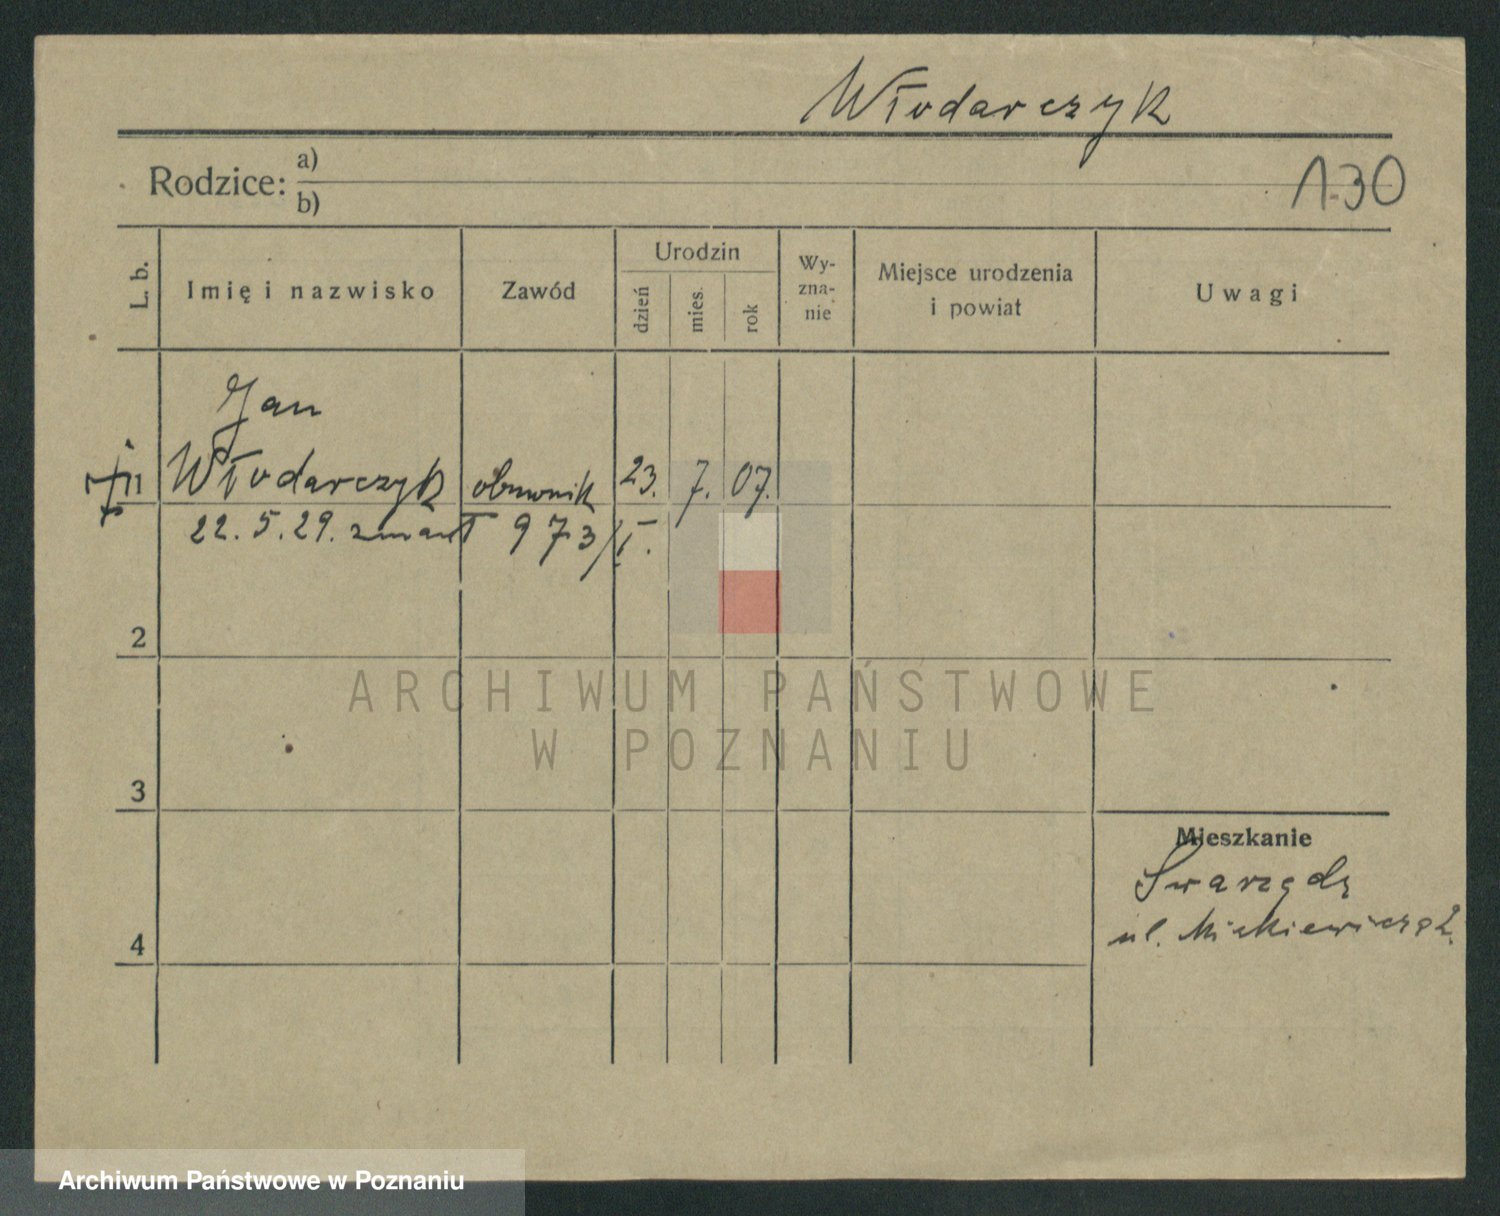 Włodarczyk
Rodzice: a)
b)
130
L. b.
Imię i nazwisko
Zawód
Urodzin
dzień
mies.
rok
Wy-
zna-
nie
Miejsce urodzenia
i powiat
Uwagi
Jan
Włodarczyk obuwnik 23. 7. 07.
22. 5. 29. zmarł 973/I.
2
3
4
Mieszkanie
Swarzędz
ul. Mickiewicza 2.
ARCHIWUM PAŃSTWOWE
W POZNANIU
Archiwum Państwowe w Poznaniu